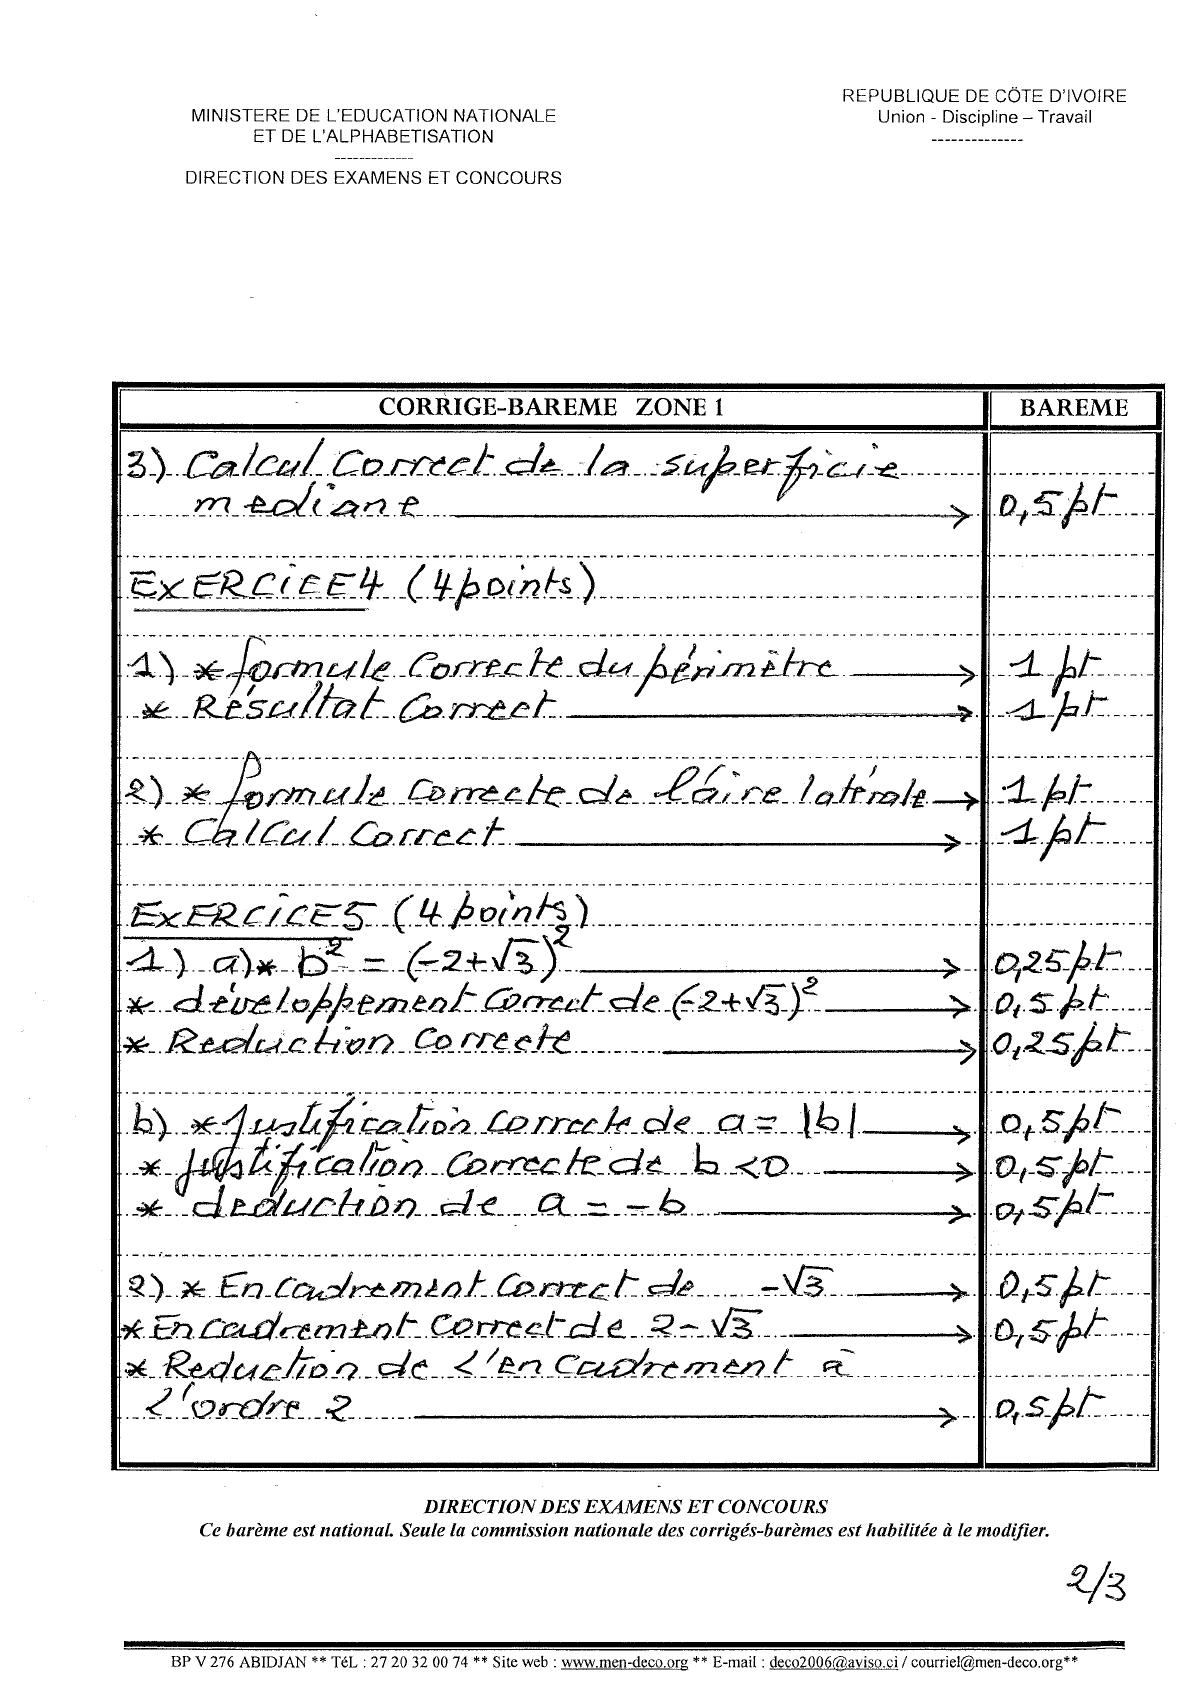 REPUBLIQUE DE CÖTE D'IVOIRE
Union - Discipline – Travail
--------------
MINISTERE DE L'EDUCATION NATIONALE
ET DE L'ALPHABETISATION
-------------
DIRECTION DES EXAMENS ET CONCOURS
CORRIGE-BAREME ZONE 1 BAREME
3) Calcul Correct de la superficie
mediane → 0,5pt
EXERCICE4 (4points)
1) * formule Correcte du périmètre → 1 pt
* Résultat Correct → 1 pt
2) * formule Correcte de l'aire latérale → 1 pt
* Calcul Correct → 1 pt
EXERCICE5 (4 points)
1) a)* b² = (-2+√3)² → 0,25pt
* développement Correct de (-2+√3)² → 0,5pt
* Reduction Correcte → 0,25pt
b) * Justification Correcte de a = |b| → 0,5pt
* Justification Correcte de b <0 → 0,5pt
* deduction de a = -b → 0,5pt
2) * Encadrement Correct de -√3 → 0,5pt
* Encadrement Correct de 2-√3 → 0,5pt
* Reduction de l'encadrement à
l'ordre 2 → 0,5pt
DIRECTION DES EXAMENS ET CONCOURS
Ce barème est national. Seule la commission nationale des corrigés-barèmes est habilitée à le modifier.
2/3
BP V 276 ABIDJAN ** TéL : 27 20 32 00 74 ** Site web : www.men-deco.org ** E-mail : deco2006@aviso.ci / courriel@men-deco.org**